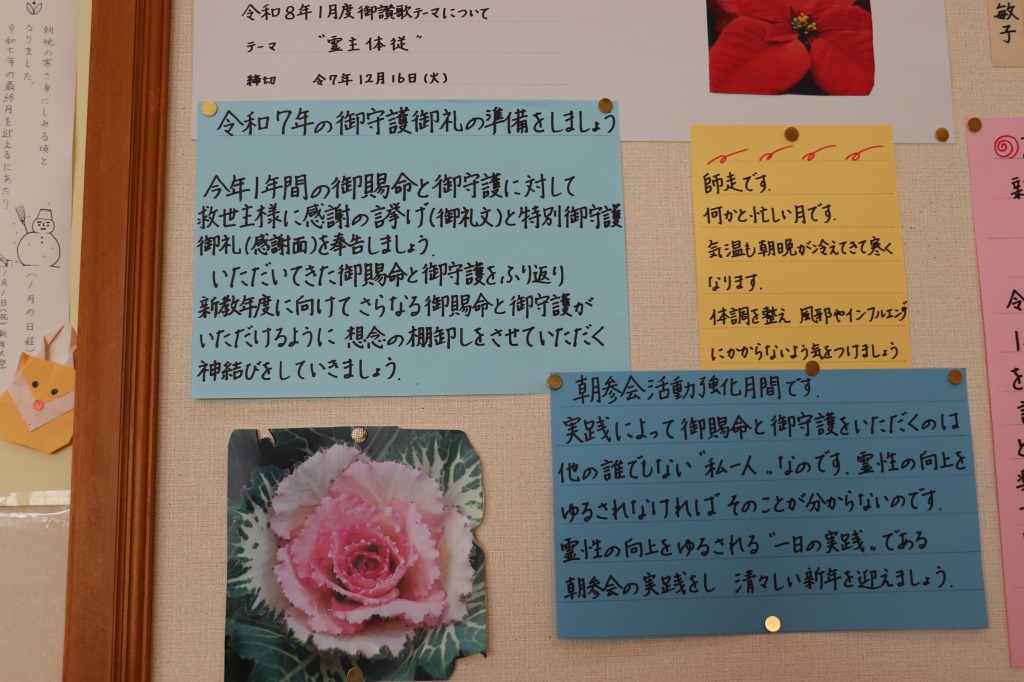 朝晩の寒さ身にしみる頃と
なりました。
令和七年の最終月を迎えるにあたり
令和8年1月度御讃歌テーマについて
テーマ "霊主体従"
締切 令7年12月16日(火)
敏子
令和7年の御守護御礼の準備をしましょう
今年1年間の御賜命と御守護に対して
救世主様に感謝の言挙げ(御礼文)と特別御守護
御礼(感謝面)を奉告しましょう.
いただいてきた御賜命と御守護をふり返り
新教年度に向けてさらなる御賜命と御守護が
いただけるように 想念の棚卸しをさせていただく
神結びをしていきましょう.
師走です.
何かと忙しい月です.
気温も朝晩が冷えてきて寒く
なります.
体調を整え 風邪やインフルエンザ
にかからないよう気をつけましょう
朝参会活動強化月間です.
実践によって御賜命と御守護をいただくのは
他の誰でしない"私一人"なのです.霊性の向上を
ゆるされなければそのことが分からないのです.
霊性の向上をゆるされる"一日の実践"である
朝参会の実践をし 清々しい新年を迎えましょう.